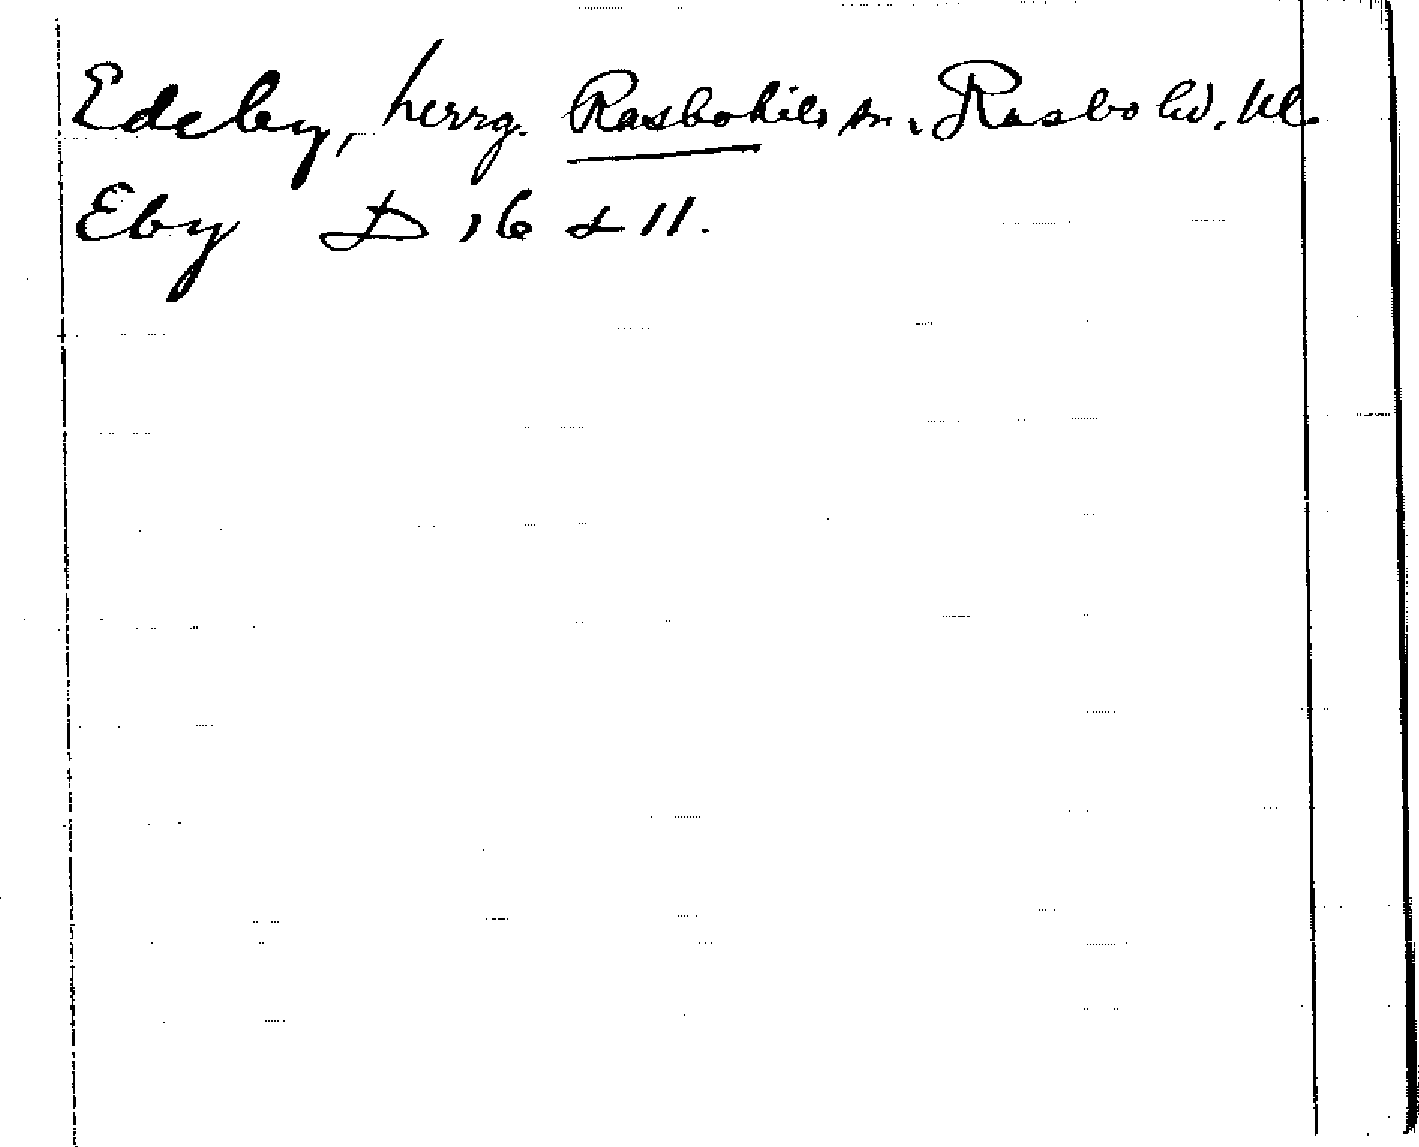 Edeby, herrg. Rasbokils sn., Rasbo hd, Upl.
Eby D 16 & 11.